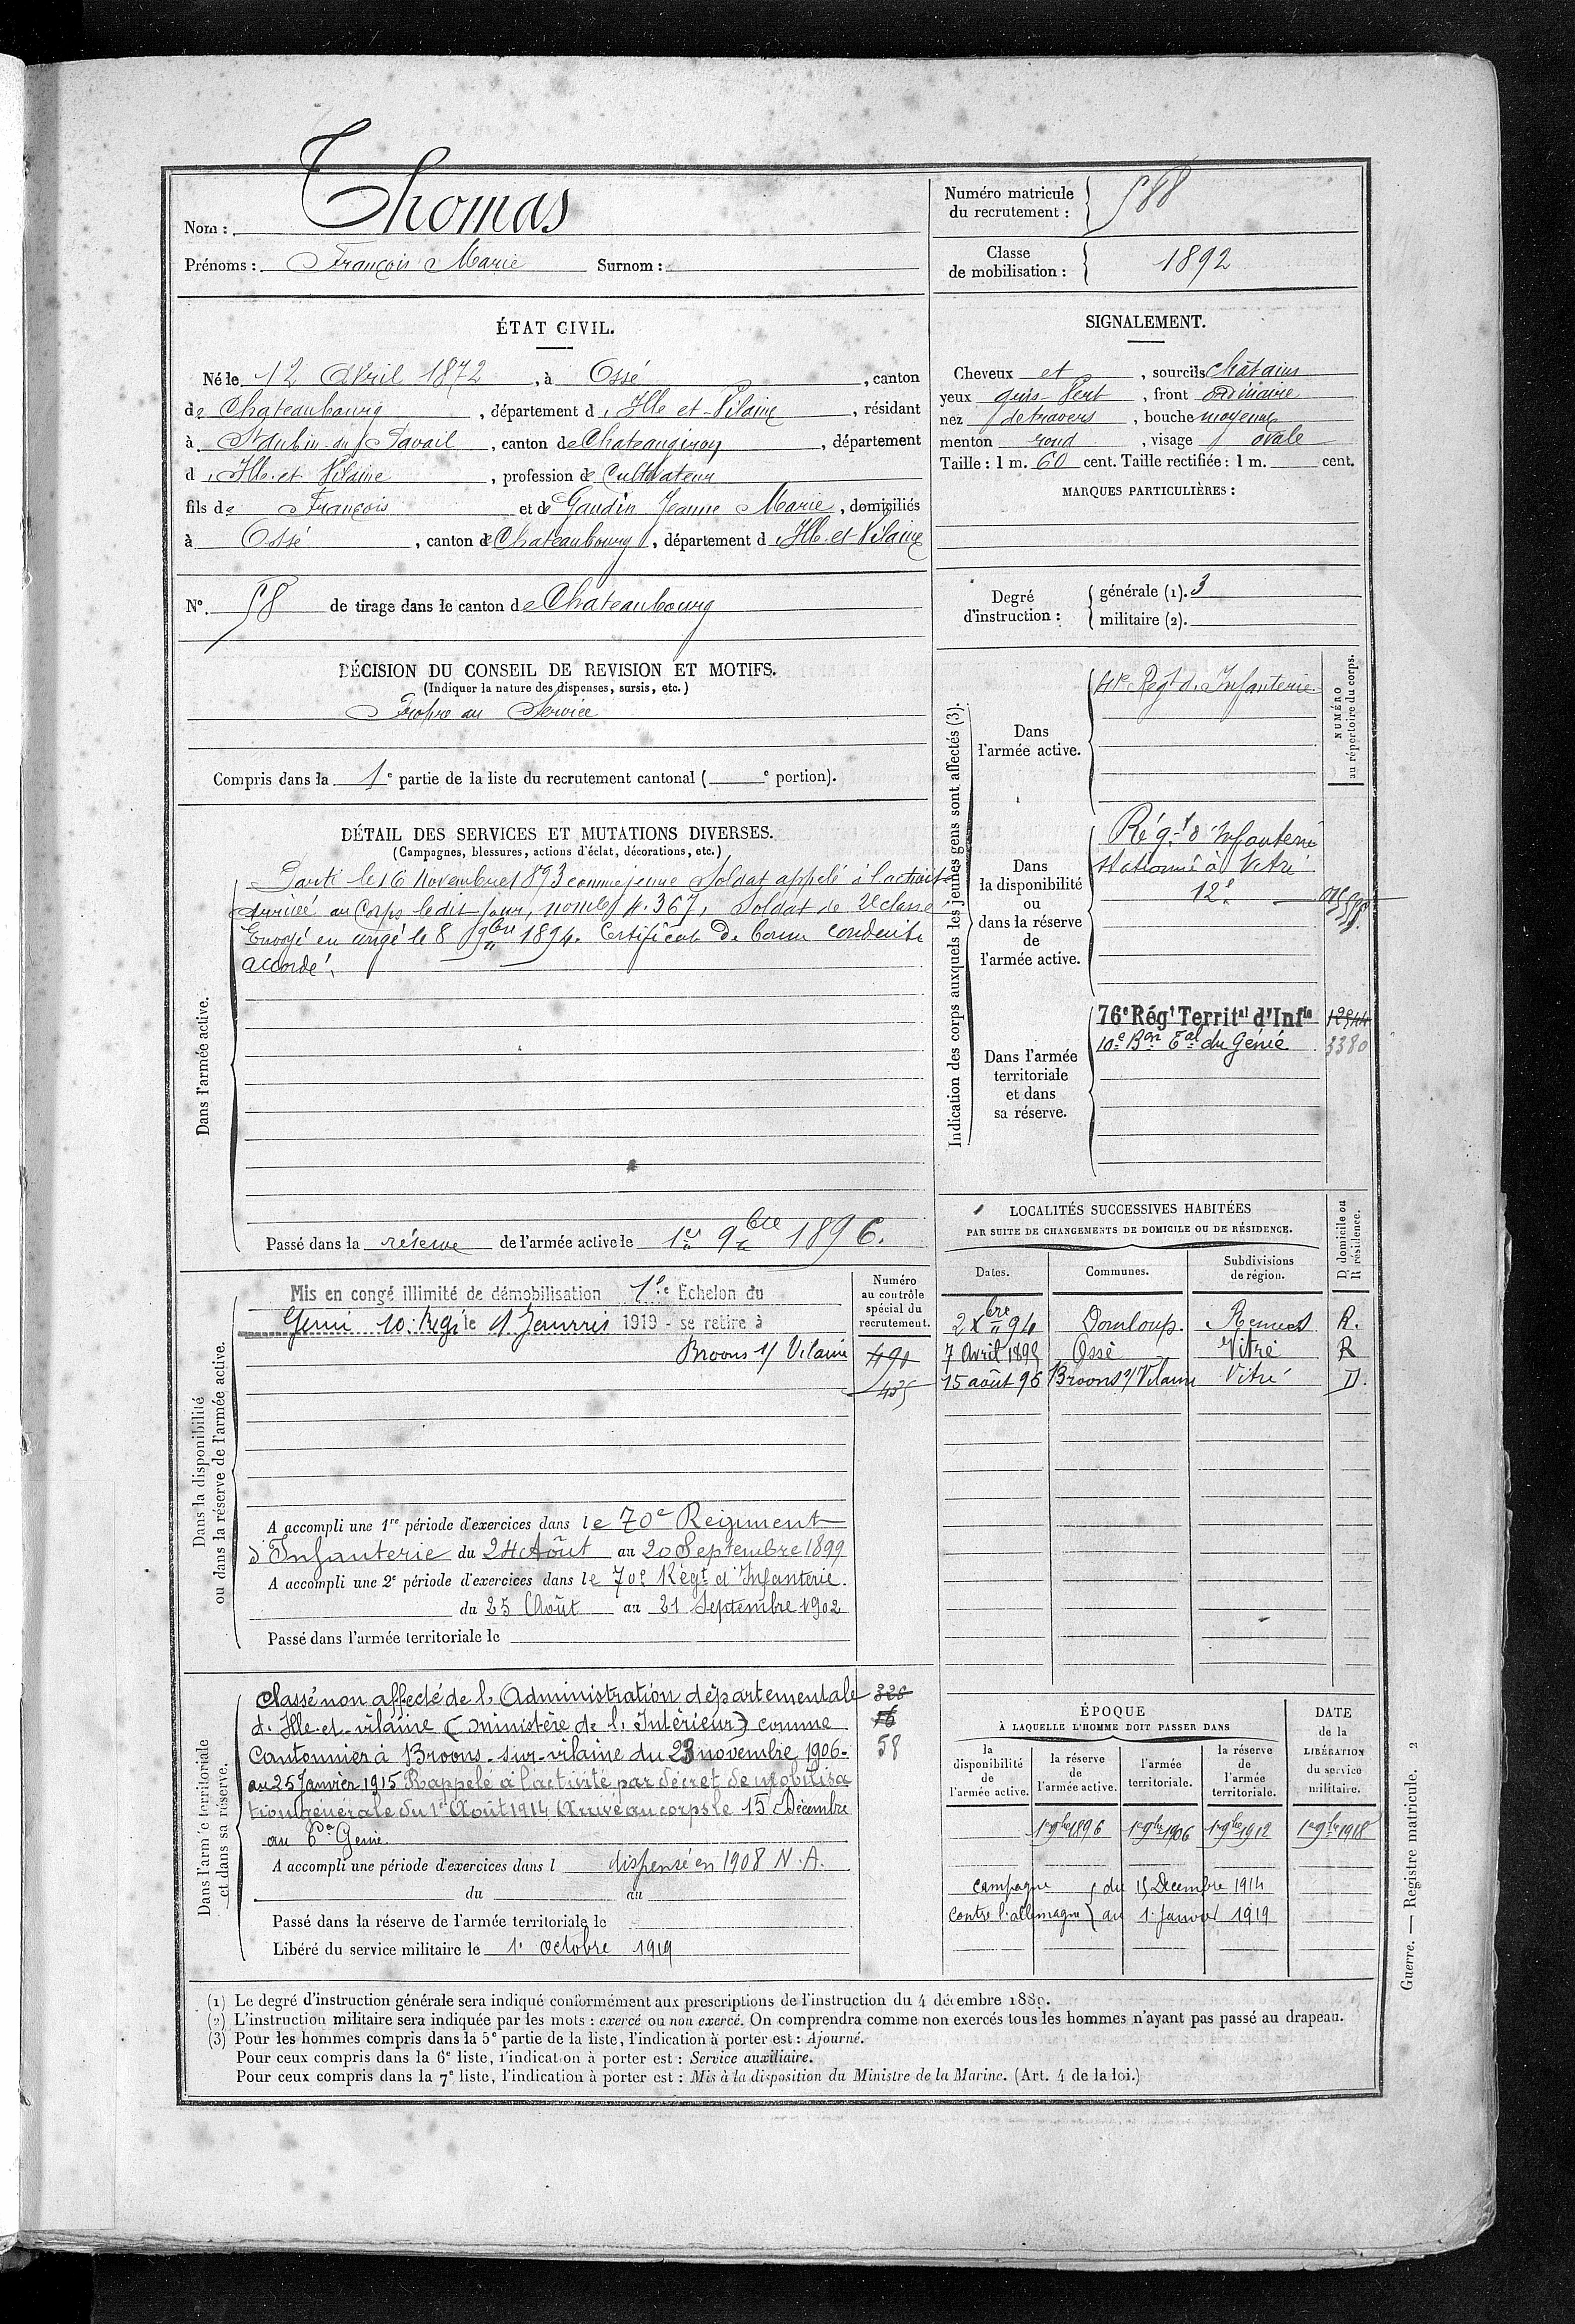 Nom : Thomas
Prénoms : François Marie Surnom :
Numéro matricule du recrutement : 588
Classe de mobilisation : 1892
ÉTAT CIVIL.
Né le 12 Avril 1872, à Ossé, canton
de Chateaubourg, département d'Ille et-Vilaine, résidant
à St Aubin du Pavail, canton de Chateaugiron, département
d'Ille et Vilaine, profession de Cultivateur
fils de François et de Gaudin Jeanne Marie, domiciliés
à Ossé, canton de Chateaubourg, département d'Ille et-Vilaine
N° 58 de tirage dans le canton de Chateaubourg
SIGNALEMENT.
Cheveux et, sourcils châtains
yeux gris-vert, front ordinaire
nez de travers, bouche moyenne
menton rond, visage ovale
Taille : 1 m. 60 cent. Taille rectifiée : 1 m. cent.
MARQUES PARTICULIÈRES :
Degré d'instruction : générale (1). 3
militaire (2).
DÉCISION DU CONSEIL DE REVISION ET MOTIFS.
(Indiquer la nature des dispenses, sursis, etc.)
Propre au Service
Compris dans la 1e partie de la liste du recrutement cantonal ( e portion).
DÉTAIL DES SERVICES ET MUTATIONS DIVERSES.
(Campagnes, blessures, actions d'éclat, décorations, etc.)
Dans l'armée active.
Parti le 16 Novembre 1893 comme jeune Soldat appelé à l'activité
Arrivé au Corps le dit jour, nomle 4.367, Soldat de 2e classe
Envoyé en congé le 8 9bre 1894. Certificat de bonne conduite
accordé.
Passé dans la réserve de l'armée active le 1er 9bre 1896.
Indication des corps auxquels les jeunes gens sont affectés (3).
NUMÉRO au répertoire du corps.
Dans l'armée active.
41e Régt d'Infanterie
Dans la disponibilité ou dans la réserve de l'armée active.
Régt d'Infanterie
stationné à Vitré
12e
Dans l'armée territoriale et dans sa réserve.
76e Régt Territal d'Infie 12544
10e Bon Tal du Génie 3380
LOCALITÉS SUCCESSIVES HABITÉES
PAR SUITE DE CHANGEMENTS DE DOMICILE OU DE RÉSIDENCE.
Dates. Communes. Subdivisions de région. D. domicile ou R. résidence.
2 Xbre 94 Domloup Rennes R.
7 Avril 1895 Ossé Vitré R
15 août 96 Broons s/ Vilaine Vitré D.
Dans la disponibilité ou dans la réserve de l'armée active.
Numéro au contrôle spécial du recrutement.
Mis en congé illimité de démobilisation 1er Echelon du
Génie 10e Regi le 1 Janvier 1919 - se retire à
Broons s/ Vilaine
490
435
A accompli une 1re période d'exercices dans le 70e Régiment
d'Infanterie du 24 Août au 20 Septembre 1899
A accompli une 2e période d'exercices dans le 70e Régt d'Infanterie.
du 25 Août au 21 Septembre 1902
Passé dans l'armée territoriale le
Dans l'armée territoriale et dans sa réserve.
Classé non affecté de l'Administration départementale 326
d'Ille-et-vilaine (Ministère de l'Intérieur) comme 56
Cantonnier à Broons-sur-vilaine du 23 novembre 1906 58
au 25 Janvier 1915 Rappelé à l'activité par décret de mobilisa
tion générale du 1er Août 1914 Arrivé au corps le 15 Décembre
au 6e Génie
A accompli une période d'exercices dans l dispensé en 1908 N.A.
du au
Passé dans la réserve de l'armée territoriale le
Libéré du service militaire le 1er octobre 1919
ÉPOQUE
À LAQUELLE L'HOMME DOIT PASSER DANS
la disponibilité de l'armée active. la réserve de l'armée active. l'armée territoriale. la réserve de l'armée territoriale.
DATE de la LIBÉRATION du service militaire.
1er 9bre 1896 1er 9bre 1906 1er 9bre 1912 1er 9bre 1918
Campagne du 15 Decembre 1914
contre l'allemagne au 1er Janvier 1919
(1) Le degré d'instruction générale sera indiqué conformément aux prescriptions de l'instruction du 4 décembre 1889.
(2) L'instruction militaire sera indiquée par les mots : exercé ou non exercé. On comprendra comme non exercés tous les hommes n'ayant pas passé au drapeau.
(3) Pour les hommes compris dans la 5e partie de la liste, l'indication à porter est : Ajourné.
Pour ceux compris dans la 6e liste, l'indication à porter est : Service auxiliaire.
Pour ceux compris dans la 7e liste, l'indication à porter est : Mis à la disposition du Ministre de la Marine. (Art. 4 de la loi.)
Guerre. — Registre matricule. 2